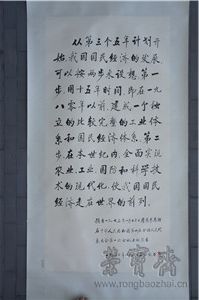 从第三个五年计划开
始，我国国民经济的发展
可以按两步来设想：第一
步，用十五年时间，即在一
九八零年以前，建成一个独
立的比较完整的工业体
系和国民经济体系；第二
步，在本世纪内，全面实现
农业、工业、国防和科学技
术的现代化，使我国国民
经济走在世界的前列。
荣宝斋
www.rongbaozhai.cn